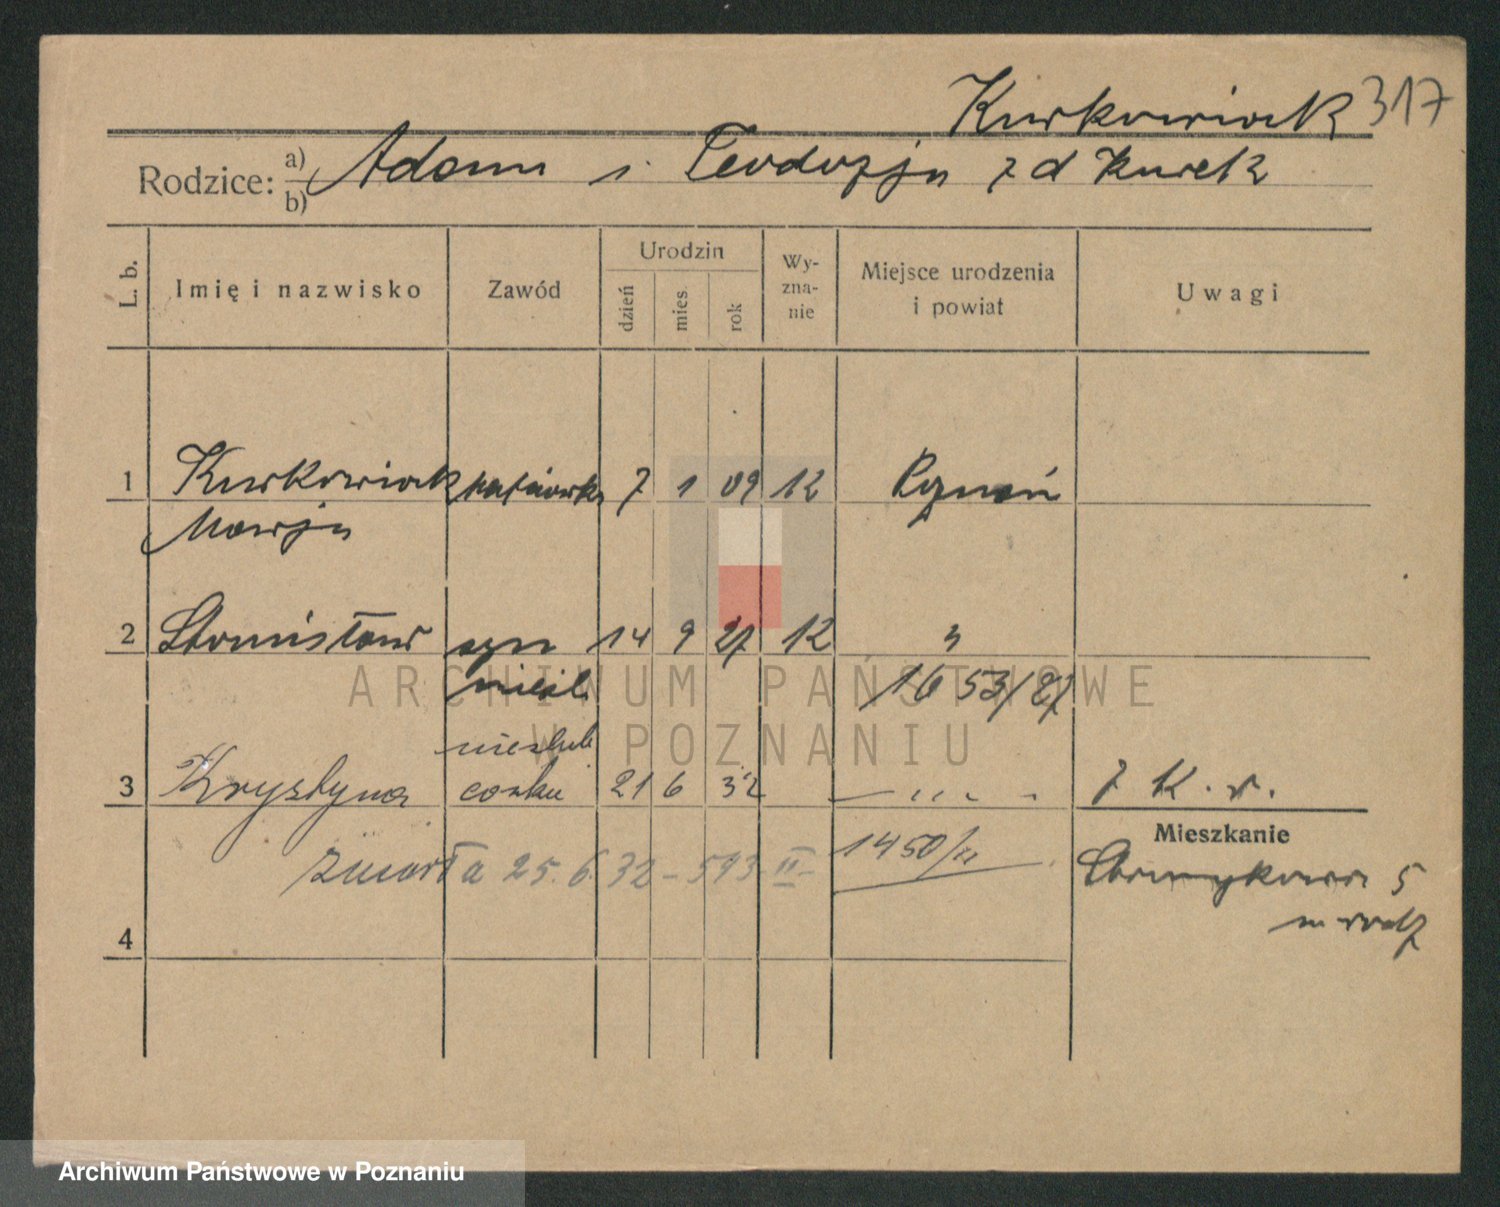 Kurkowiak 317
Rodzice: a) Adam i Teodozja z d Kurek
b)
L. b.
Imię i nazwisko
Zawód
Urodzin
dzień
mies.
rok
Wy-
zna-
nie
Miejsce urodzenia
i powiat
Uwagi
1 Kurkowiak 7 1 09 12 Poznań
Marja
2 Stanisław syn 14 9 27 12 "
nieśl. 1653/27
nieślub
3 Krystyna córka 21 6 32 — " — 7 K. r.
zmarła 25.6.32 – 593 II – 1450/II
Mieszkanie
5
4
ARCHIWUM PAŃSTWOWE
W POZNANIU
Archiwum Państwowe w Poznaniu